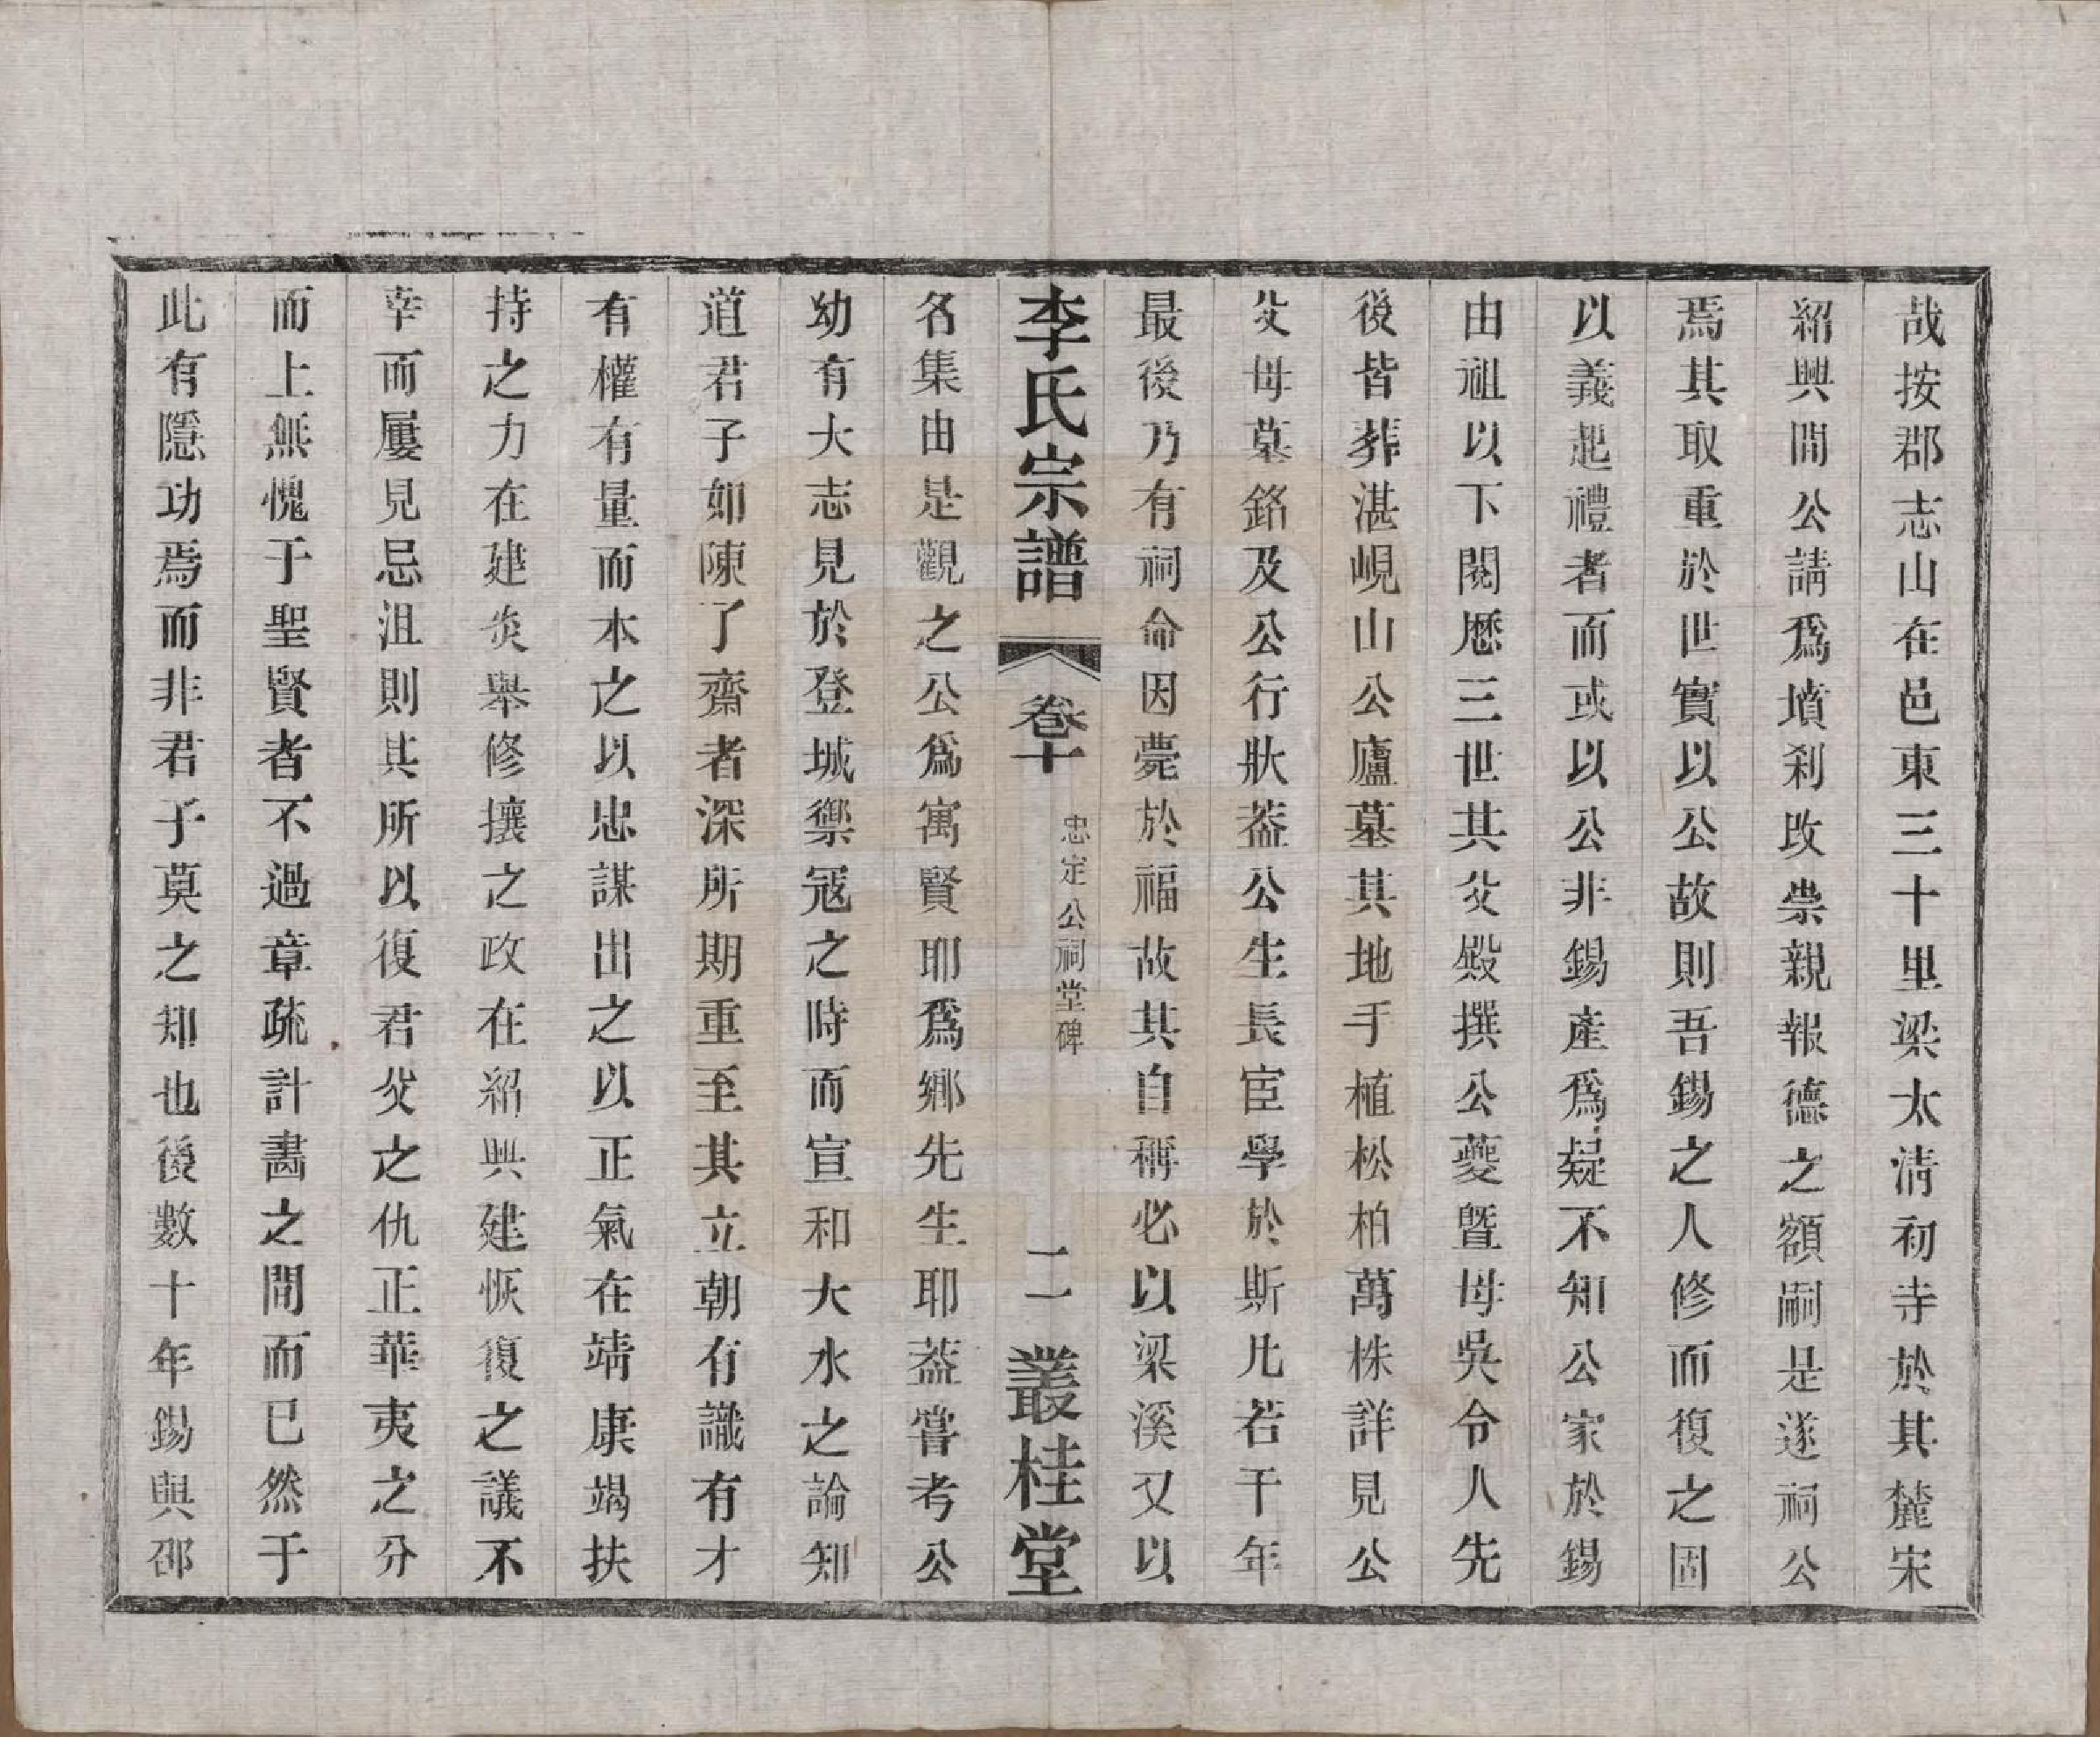 哉按郡志山在邑東三十里梁太淸初寺於其麓宋
紹興間公請爲墳刹改崇親報德之額嗣是遂祠公
焉其取重於世實以公故則吾錫之人修而復之固
以義起禮者而或以公非錫產爲疑不知公家於錫
由祖以下閱歷三世其父殿撰公夔曁母吳令人先
後皆葬湛峴山公廬墓其地手植松柏萬株詳見公
父母墓銘及公行狀葢公生長宦學於斯凡若干年
最後乃有祠命因薨於福故其自稱必以梁溪又以
李氏宗譜
卷十
忠定公祠堂碑
二
叢桂堂
名集由是觀之公爲寓賢耶爲鄉先生耶葢嘗考公
幼有大志見於登城禦冦之時而宣和大水之論知
道君子如陳了齋者深所期重至其立朝有識有才
有權有量而本之以忠謀出之以正氣在靖康竭扶
持之力在建炎舉修攘之政在紹興建恢復之議不
幸而屢見忌沮則其所以復君父之仇正華夷之分
而上無愧于聖賢者不過章疏計畵之間而已然于
此有隱功焉而非君子莫之知也後數十年錫與邵